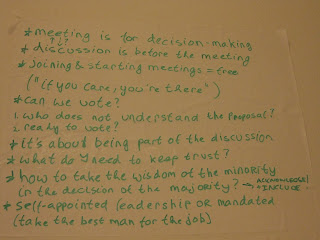 * meeting is for decision-making
? ? ?
* discussion is before the meeting
* Joining & starting meetings = free
("if you care, you're there")
* can we vote?
1. who does not understand the proposal?
2. ready to vote?
* It's about being part of the discussion
* what do I need to keep trust?
* how to take the wisdom of the minority
in the decision of the majority? → ACKNOWLEDGE
+ INCLUDE
* self-appointed leadership or mandated
(take the best man for the job)